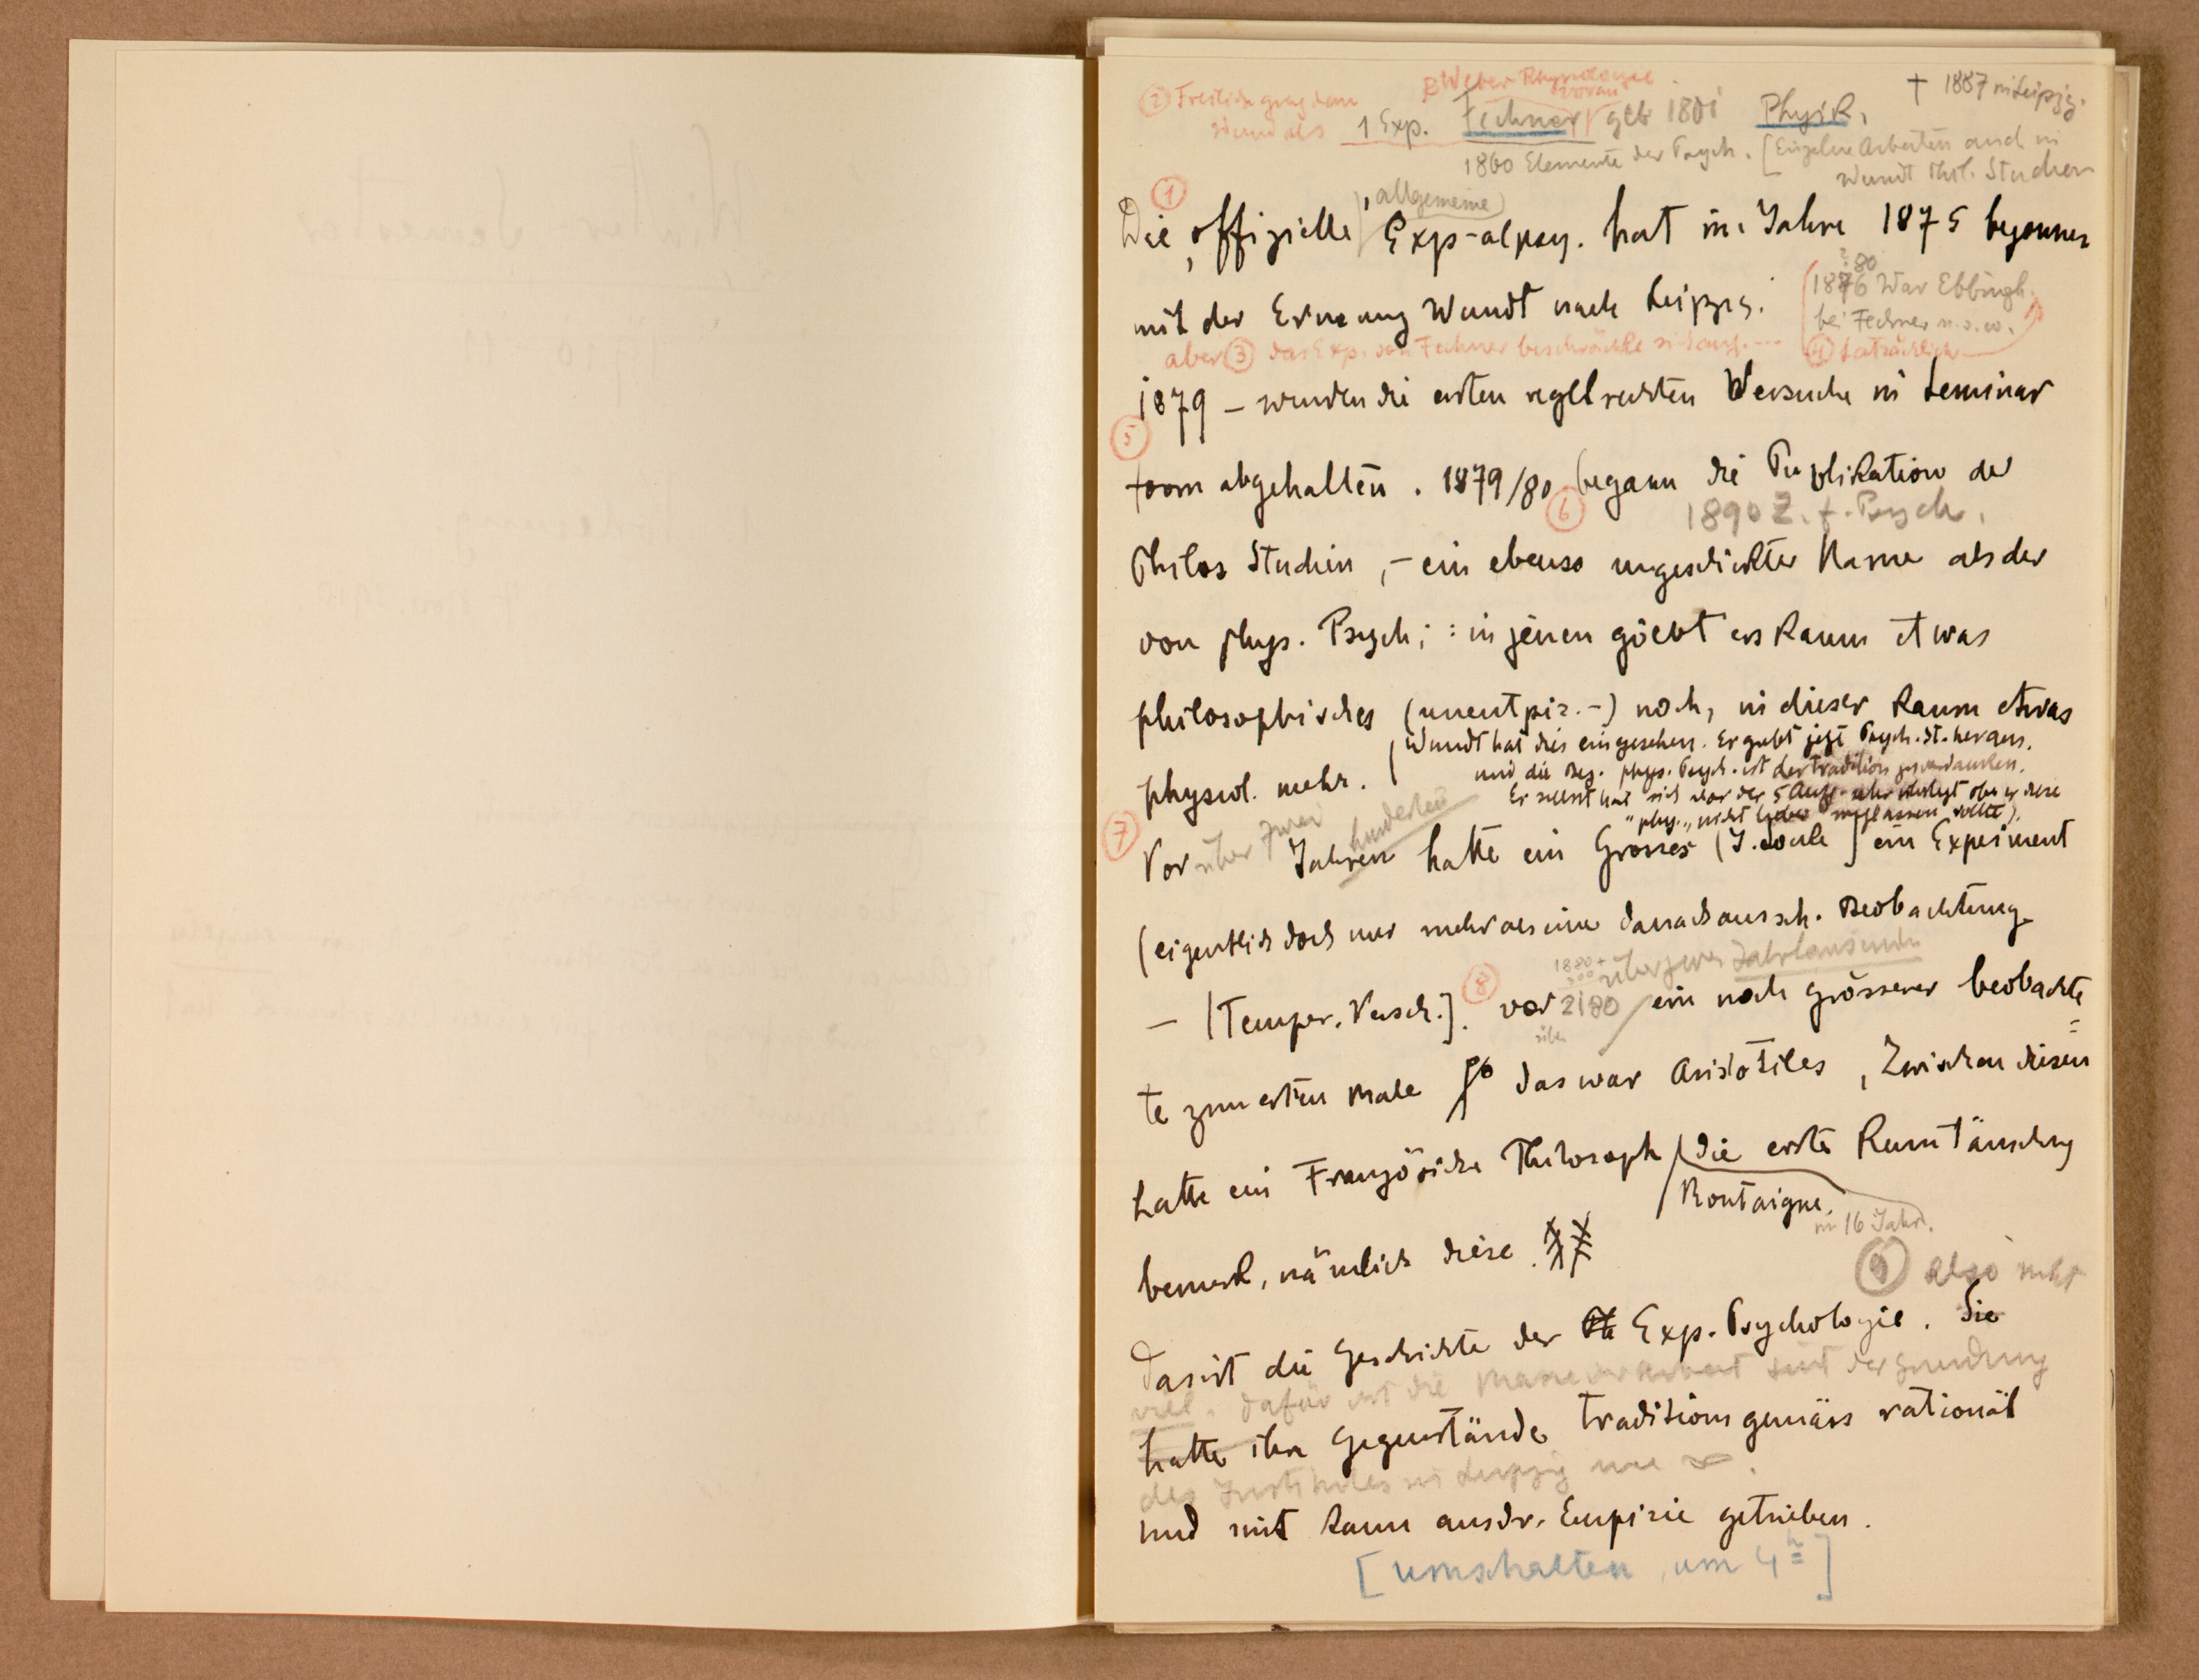 ② Freilich ging dem
Wund als
Weber Physiologe
voran
1 Exp. Fechner geb 1801 Physik,
† 1887 in Leipzig.
1860 Elemente der Psych. [Einzelne Arbeiten auch in
Wundt Phil. Studien
①
allgemeine
Die offizielle Exp-alpsy. hat im Jahre 1875 begonnen
mit der Ernenung Wundt nach Leipzig.
80
1876 War Ebbingh.
bei Fechner u.s.w.
aber ③ das Exp. von Fechner beschränkte sich auf ---
④ tatsächlich
1879 – wurden die ersten regelrechten Versuche in Seminar
⑤
form abgehalten. 1879/80 begann die Publikation der
⑥
1890 Z. f. Psych.
Philos Studien, – ein ebenso ungeschickter Name als der
von phys. Psych; : in jenen giebt es kaum etwas
philosophisches noch, in dieser kaum etwas
physiol. mehr.
(Wundt hat dies eingesehen. Er giebt jetzt Psych. St. heraus,
und die Bez. phys. Psych. ist der Tradition zu verdanken.
Er selbst hat sich vor der 5 Aufl. sehr überlegt ob er diese
"phys." nicht lieber weglassen sollte).
⑦
Vor über zwei hunderten Jahren hatte ein Grosses (J. Locke) ein Expeiment
(eigentlich doch nur mehr als eine danach aussch. Beobachtung
– [Temper. Versch.]. ⑧ vor 2180 ein noch grösserer beobachte
1880 +
300
über zwei Jahrtausende
über
te zum ersten Male das war Aristoteles, Zwischen diesen
hatte ein Französiche Philosoph die erste Raumtäuschung
Montaigne.
im 16 Jahr.
bemerk, nämlich diese.
⑨ also nicht
Das ist die Geschichte der Exp. Psychologie. Sie
viel. dafür ist die seit der Gründung
hatte ihre Gegenstände traditionsgemäss rational
des Institutes in Leipzig
und mit kaum ausdr. Empirie getrieben.
[umschalten, um 4 h]